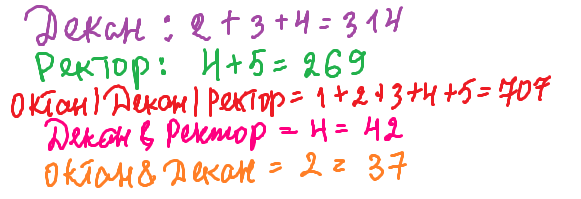 Декан: 2+3+4=314
Ректор: 4+5=269
Октан|Декан|Ректор=1+2+3+4+5=707
Декан & Ректор = 4 = 42
Октан & Декан = 2 = 37